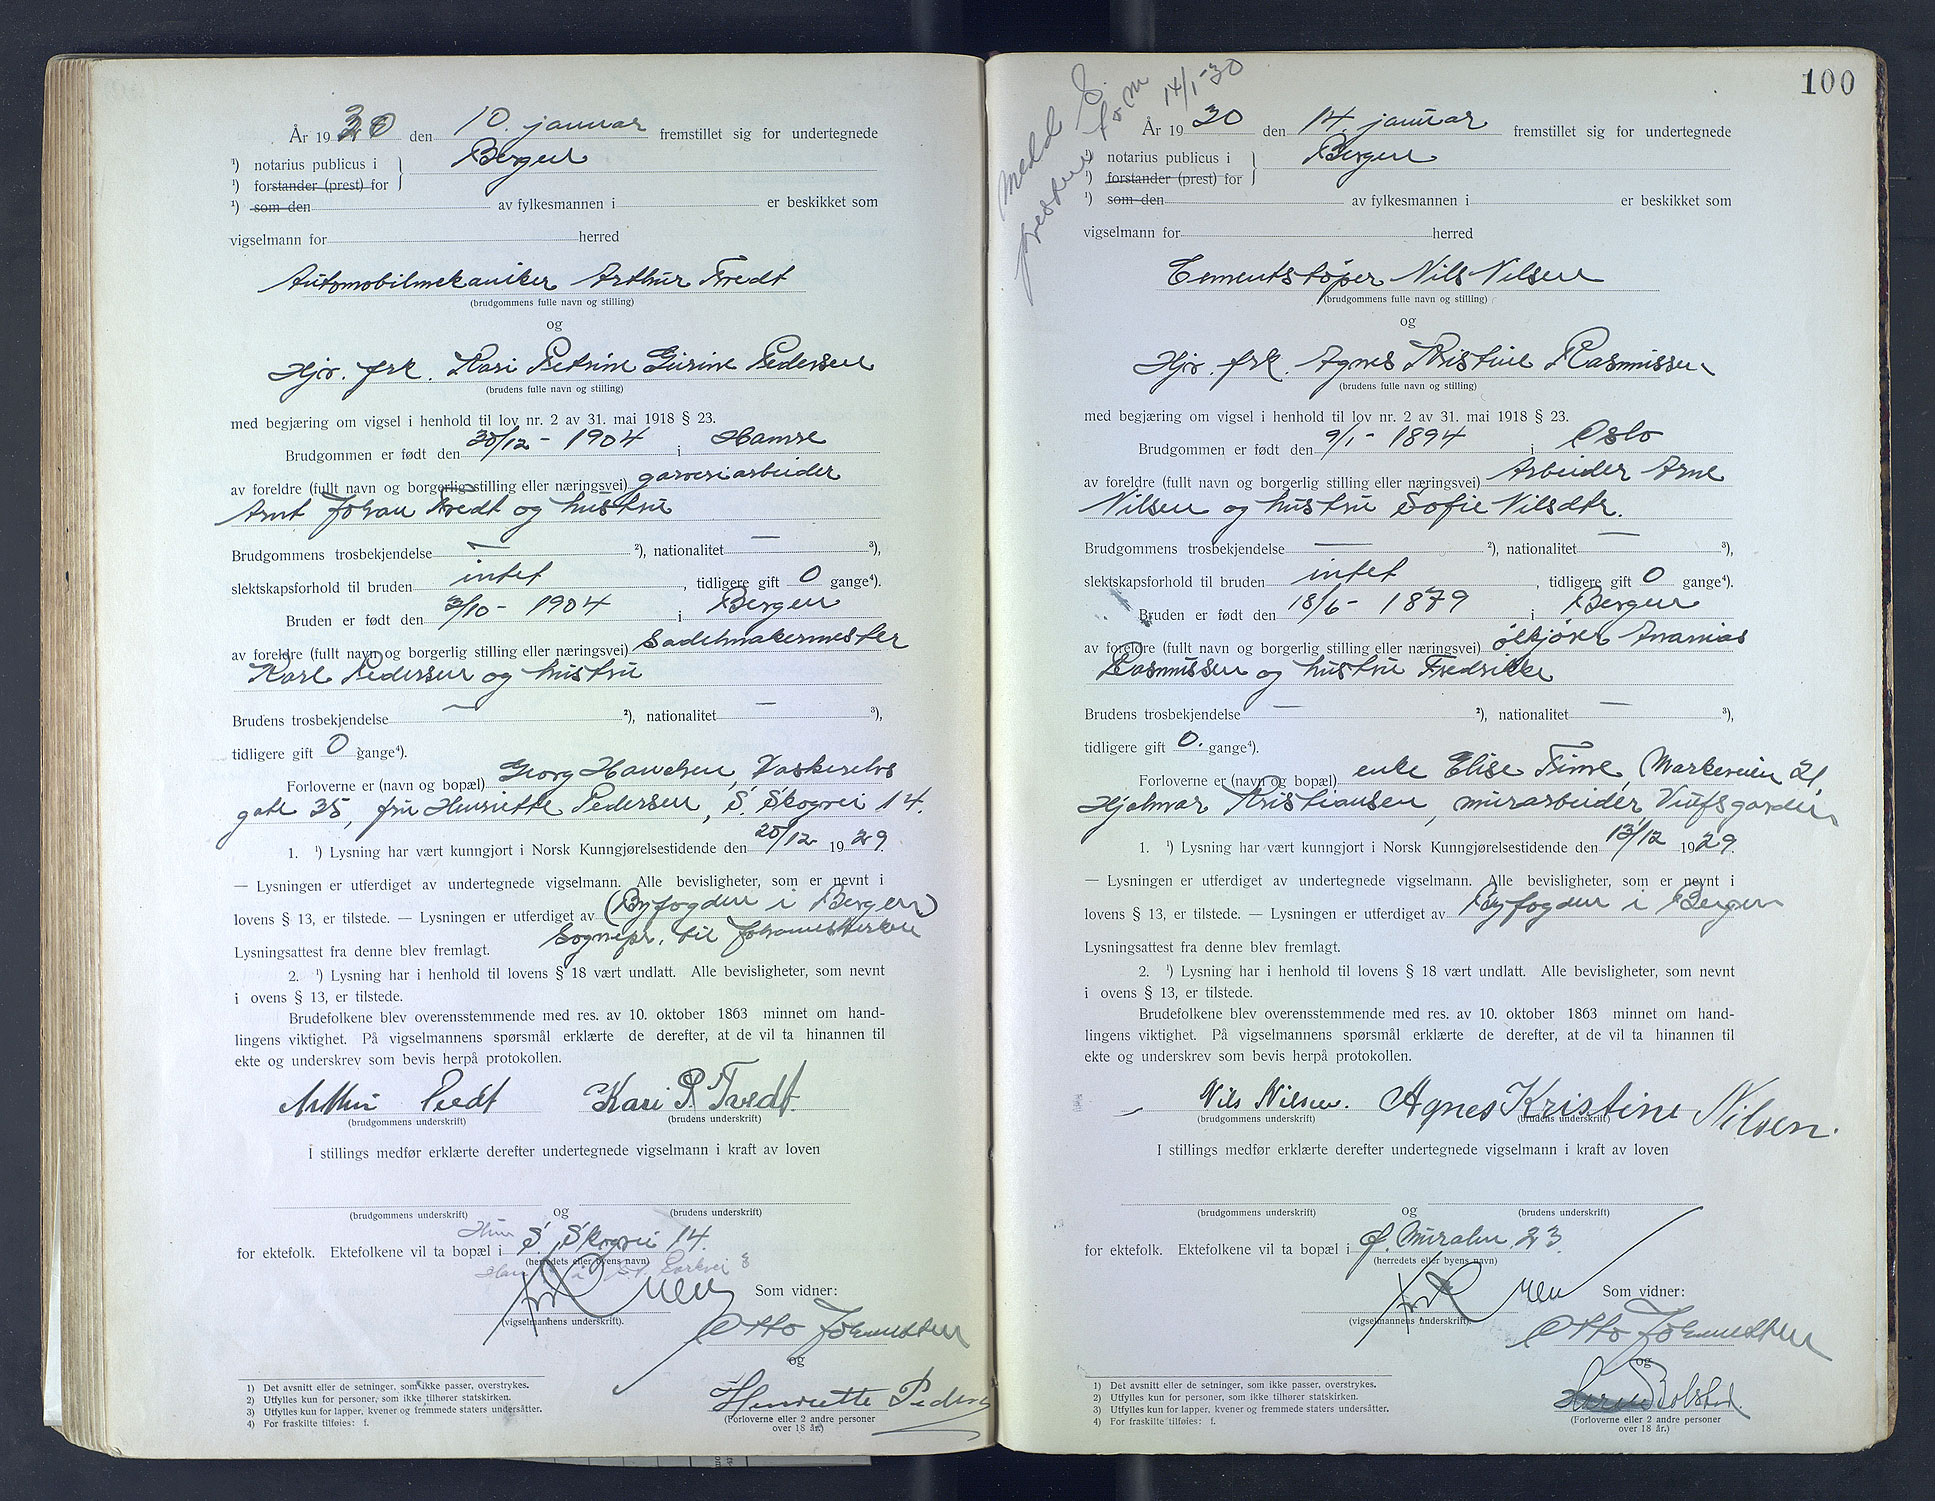 År 1930 den 10. januar fremstillet sig for undertegnede
¹) notarius publicus i } Bergen
¹) forstander (prest) for
¹) som den av fylkesmannen i er beskikket som
vigselmann for herred
Automobilmekaniker Arthur Tvedt
(brudgommens fulle navn og stilling)
og
Hjv. frk. Kari Petrine Gurine Pedersen
(brudens fulle navn og stilling)
med begjæring om vigsel i henhold til lov nr. 2 av 31. mai 1918 § 23.
Brudgommen er født den 30/12 - 1904 i Hamre
av foreldre (fullt navn og borgerlig stilling eller næringsvei) garveriarbeider
Arnt Johan Tvedt og hustru
Brudgommens trosbekjendelse — ²), nationalitet — ³),
slektskapsforhold til bruden intet, tidligere gift 0 gange⁴).
Bruden er født den 3/10 - 1904 i Bergen
av foreldre (fullt navn og borgerlig stilling eller næringsvei) Sadelmakermester
Karl Pedersen og hustru
Brudens trosbekjendelse — ²), nationalitet — ³),
tidligere gift 0 gange⁴).
Forloverne er (navn og bopæl) Georg Hauchen, Vaskerelvs
gate 35, fru Henriette Pedersen, S. Skogvei 14.
1. ¹) Lysning har vært kunngjort i Norsk Kunngjørelsestidende den 20/12 1929.
— Lysningen er utferdiget av undertegnede vigselmann. Alle bevisligheter, som er nevnt i
lovens § 13, er tilstede. — Lysningen er utferdiget av (Byfogden i Bergen)
Sognepr. til Johanneskirken
Lysningsattest fra denne blev fremlagt.
2. ¹) Lysning har i henhold til lovens § 18 vært undlatt. Alle bevisligheter, som nevnt
i ovens § 13, er tilstede.
Brudefolkene blev overensstemmende med res. av 10. oktober 1863 minnet om hand-
lingens viktighet. På vigselmannens spørsmål erklærte de derefter, at de vil ta hinannen til
ekte og underskrev som bevis herpå protokollen.
Arthur Tvedt Kari P. Tvedt.
(brudgommens underskrift) (brudens underskrift)
I stillings medfør erklærte derefter undertegnede vigselmann i kraft av loven
(brudgommens underskrift) og (brudens underskrift)
Hun
for ektefolk. Ektefolkene vil ta bopæl i S. Skogvei 14.
(herredets eller byens navn)
Som vidner:
(vigselmannens underskrift).
Otto Johannessen
og
Henriette Pedersen
(Forloverne eller 2 andre personer
over 18 år.)
1) Det avsnitt eller de setninger, som ikke passer, overstrykes.
2) Utfylles kun for personer, som ikke tilhører statskirken.
3) Utfylles kun for lapper, kvener og fremmede staters undersåtter.
4) For fraskilte tilføies: f.
100
medd
presten
14/1-30
År 1930 den 14. januar fremstillet sig for undertegnede
¹) notarius publicus i } Bergen
¹) forstander (prest) for
¹) som den av fylkesmannen i er beskikket som
vigselmann for herred
Cementstøper Nils Nilsen
(brudgommens fulle navn og stilling)
og
Hjv. frk. Agnes Kristine Rasmussen
(brudens fulle navn og stilling)
med begjæring om vigsel i henhold til lov nr. 2 av 31. mai 1918 § 23.
Brudgommen er født den 9/1 - 1894 i Oslo
av foreldre (fullt navn og borgerlig stilling eller næringsvei) Arbeider Arne
Nilsen og hustru Sofie Nilsdtr.
Brudgommens trosbekjendelse — ²), nationalitet — ³),
slektskapsforhold til bruden intet, tidligere gift 0 gange⁴).
Bruden er født den 18/6 - 1879 i Bergen
av foreldre (fullt navn og borgerlig stilling eller næringsvei) ølkjører Ananias
Rasmussen og hustru Fredrikke
Brudens trosbekjendelse — ²), nationalitet — ³),
tidligere gift 0. gange⁴).
Forloverne er (navn og bopæl) enke Elise Finne, Markeveien 21,
Hjalmar Kristiansen, murarbeider,
1. ¹) Lysning har vært kunngjort i Norsk Kunngjørelsestidende den 13/12 1929.
— Lysningen er utferdiget av undertegnede vigselmann. Alle bevisligheter, som er nevnt i
lovens § 13, er tilstede. — Lysningen er utferdiget av Byfogden i Bergen
Lysningsattest fra denne blev fremlagt.
2. ¹) Lysning har i henhold til lovens § 18 vært undlatt. Alle bevisligheter, som nevnt
i ovens § 13, er tilstede.
Brudefolkene blev overensstemmende med res. av 10. oktober 1863 minnet om hand-
lingens viktighet. På vigselmannens spørsmål erklærte de derefter, at de vil ta hinannen til
ekte og underskrev som bevis herpå protokollen.
Nils Nilsen. Agnes Kristine Nilsen.
(brudgommens underskrift) (brudens underskrift)
I stillings medfør erklærte derefter undertegnede vigselmann i kraft av loven
(brudgommens underskrift) og (brudens underskrift)
for ektefolk. Ektefolkene vil ta bopæl i 23.
(herredets eller byens navn)
Som vidner:
(vigselmannens underskrift).
Otto Johannessen
og
Bolstad.
(Forloverne eller 2 andre personer
over 18 år.)
1) Det avsnitt eller de setninger, som ikke passer, overstrykes.
2) Utfylles kun for personer, som ikke tilhører statskirken.
3) Utfylles kun for lapper, kvener og fremmede staters undersåtter.
4) For fraskilte tilføies: f.